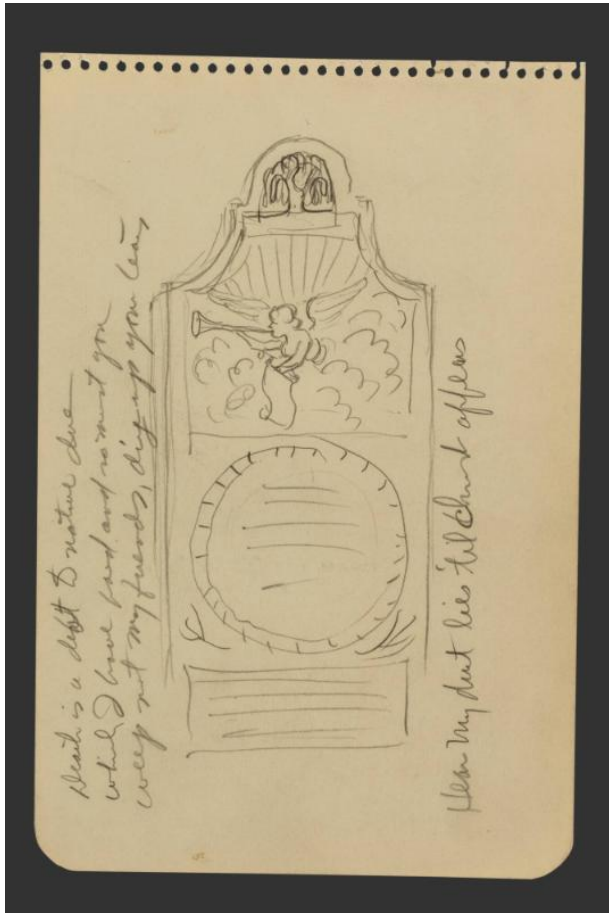 Death is a debt to nature due
which I have paid and so must you
weep not my friends, dry up your tears
Here my dust lies 'til Christ appears